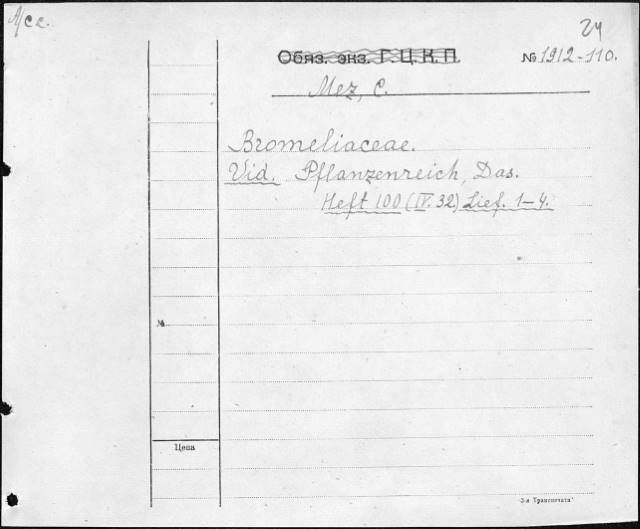 Acc. 24
Обяз. экз. Г. Ц. К. П. № 1912-110.
Mez, C.
Bromeliaceae.
Vid. Pflanzenreich, Das.
Heft 100 (IV. 32) Lief. 1-4.
№
Цена
3-я Транспечать